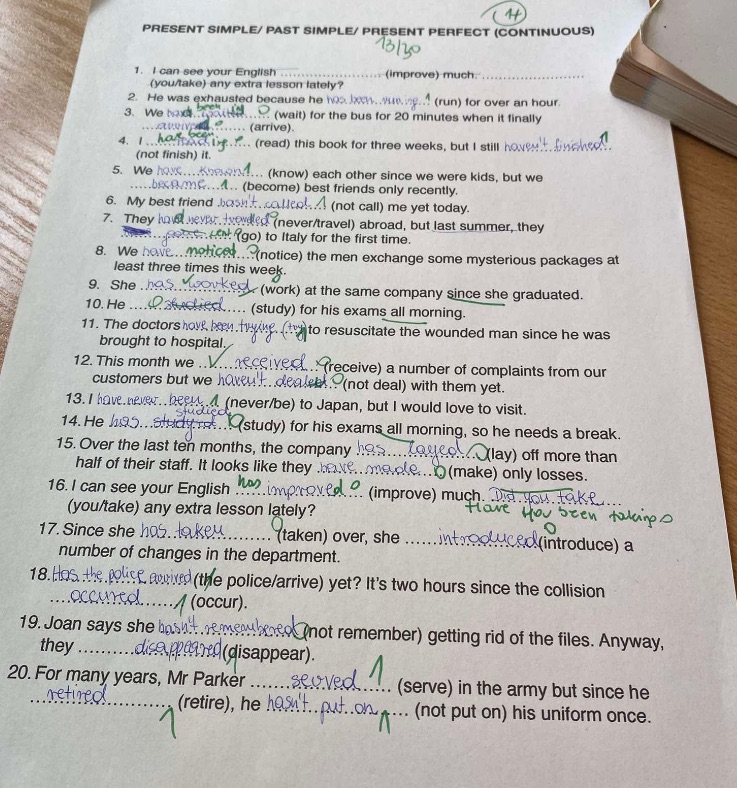 1+
PRESENT SIMPLE/ PAST SIMPLE/ PRESENT PERFECT (CONTINUOUS)
13/30
1. I can see your English .................... (improve) much. ....................
(you/take) any extra lesson lately?
2. He was exhausted because he has been running 1 (run) for over an hour.
3. We have been 0 (wait) for the bus for 20 minutes when it finally
arrived 0 (arrive).
4. I have been reading (read) this book for three weeks, but I still haven't finished 1
(not finish) it.
5. We have known 1 (know) each other since we were kids, but we
became 1 (become) best friends only recently.
6. My best friend hasn't called 1 (not call) me yet today.
7. They had never travelled 0 (never/travel) abroad, but last summer, they
(go) to Italy for the first time.
8. We have noticed (notice) the men exchange some mysterious packages at
least three times this week.
9. She has worked (work) at the same company since she graduated.
10. He studied (study) for his exams all morning.
11. The doctors have been trying (try) to resuscitate the wounded man since he was
brought to hospital.
12. This month we received (receive) a number of complaints from our
customers but we haven't 0 (not deal) with them yet.
13. I have never been 1 (never/be) to Japan, but I would love to visit.
studied
14. He has 0 (study) for his exams all morning, so he needs a break.
15. Over the last ten months, the company has layed 0 (lay) off more than
half of their staff. It looks like they have made 0 (make) only losses.
16. I can see your English has improved 0 (improve) much. Did you take
(you/take) any extra lesson lately? Have you been taking 0
17. Since she has taken 0 (taken) over, she introduced 0 (introduce) a
number of changes in the department.
18. Has the police arrived (the police/arrive) yet? It's two hours since the collision
occured 1 (occur).
19. Joan says she hasn't remembered 0 (not remember) getting rid of the files. Anyway,
they disappeared (disappear).
20. For many years, Mr Parker served 1 (serve) in the army but since he
retired 1 (retire), he hasn't put on 1 (not put on) his uniform once.